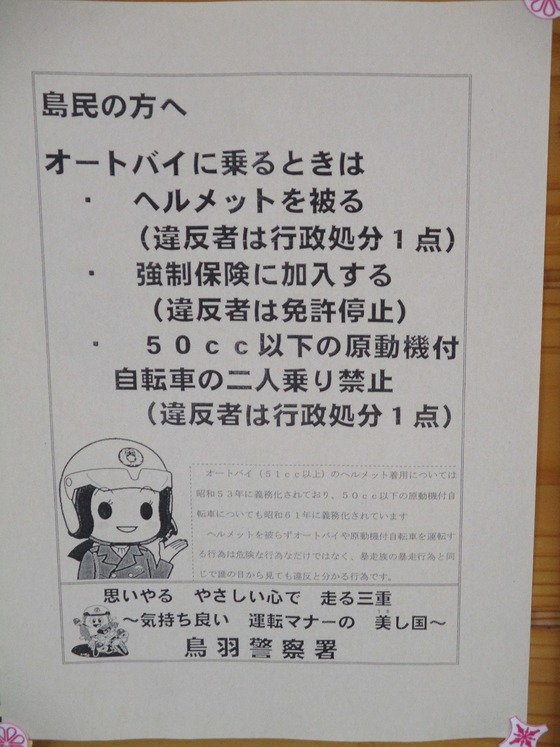 島民の方へ
オートバイに乗るときは
・ ヘルメットを被る
（違反者は行政処分１点）
・ 強制保険に加入する
（違反者は免許停止）
・ ５０ｃｃ以下の原動機付
自転車の二人乗り禁止
（違反者は行政処分１点）
オートバイ（５１ｃｃ以上）のヘルメット着用については
昭和５３年に義務化されており、５０ｃｃ以下の原動機付自
転車についても昭和６１年に義務化されています
ヘルメットを被らずオートバイや原動機付自転車を運転す
る行為は危険な行為なだけではなく、暴走族の暴走行為と同
じで誰の目から見ても違反と分かる行為です。
思いやる やさしい心で 走る三重
～気持ち良い 運転マナーの 美し国～
鳥羽警察署